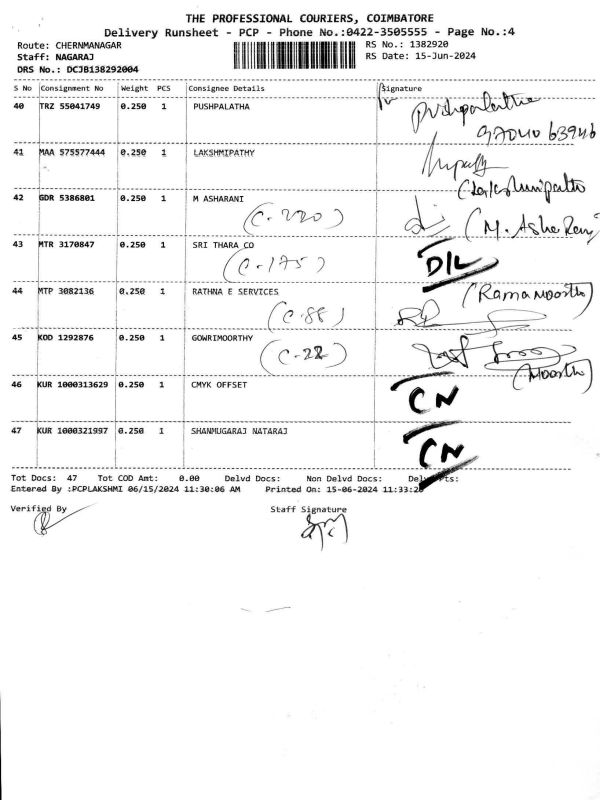 THE PROFESSIONAL COURIERS, COIMBATORE
Delivery Runsheet - PCP - Phone No.:0422-3505555 - Page No.:4
Route: CHERNMANAGAR RS No.: 1382920
Staff: NAGARAJ RS Date: 15-Jun-2024
DRS No.: DCJB138292004
S No Consignment No Weight PCS Consignee Details Signature
40 TRZ 55041749 0.250 1 PUSHPALATHA Pushpalatha
97040 63946
41 MAA 575577444 0.250 1 LAKSHMIPATHY
(Lakshmipathy
42 GDR 5386801 0.250 1 M ASHARANI
(C-220) (M. Asha Rani)
43 MTR 3170847 0.250 1 SRI THARA CO
(C-175) D/L
44 MTP 3082136 0.250 1 RATHNA E SERVICES (Rama Moorthy)
(C-88)
45 KOD 1292876 0.250 1 GOWRIMOORTHY
(C-22) (Moorthy)
46 KUR 1000313629 0.250 1 CMYK OFFSET CN
47 KUR 1000321997 0.250 1 SHANMUGARAJ NATARAJ CN
Tot Docs: 47 Tot COD Amt: 0.00 Delvd Docs: Non Delvd Docs:
Entered By :PCPLAKSHMI 06/15/2024 11:30:06 AM Printed On: 15-06-2024 11:33:26
Verified By Staff Signature